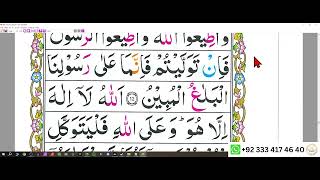 وَاَطِيعُوا اللّٰهَ وَاَطِيعُوا الرَّسُولَ
فَاِنْ تَوَلَّيْتُمْ فَاِنَّمَا عَلٰى رَسُوْلِنَا
الْبَلٰغُ الْمُبِيْنُ ۝١٢ اَللّٰهُ لَآ اِلٰهَ
اِلَّا هُوَ ؕ وَعَلَى اللّٰهِ فَلْيَتَوَكَّلِ
+92 333 417 46 40